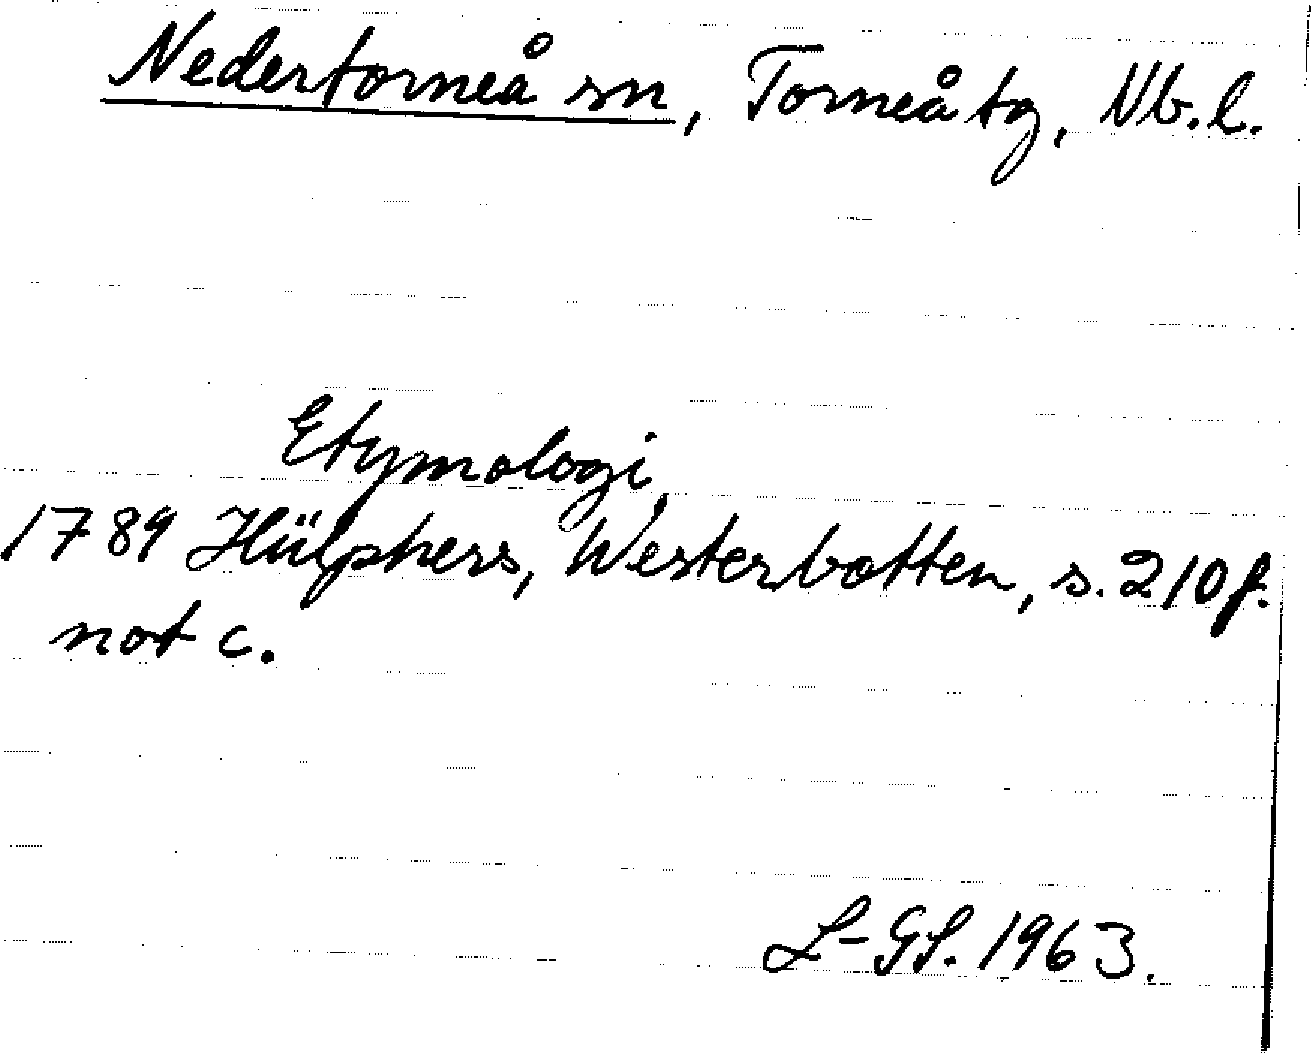 Nedertorneå sn, Torneå tg, Nb. l.
Etymologi
1789 Hülphers, Westerbotten, s. 210 f.
not c.
L-GS. 1963.